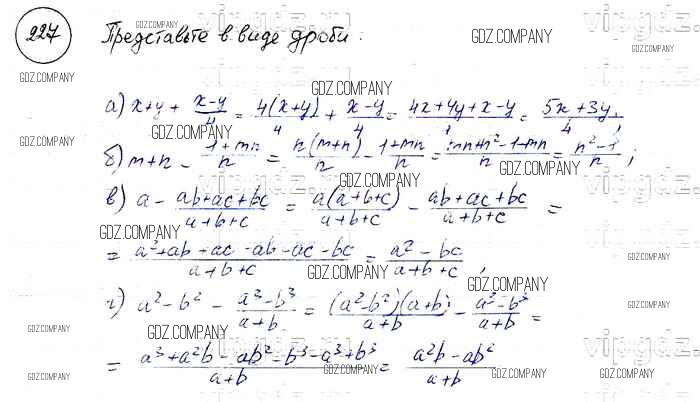 227 Представьте в виде дроби:
GDZ.COMPANY GDZ.COMPANY GDZ.COMPANY
GDZ.COMPANY
GDZ.COMPANY
а) x+y + (x-y)/4 = 4(x+y)/4 + (x-y)/4 = (4x+4y+x-y)/4 = (5x+3y)/4;
GDZ.COMPANY GDZ.COMPANY
б) m+n - (1+mn)/n = n(m+n)/n - (1+mn)/n = (mn+n²-1-mn)/n = (n²-1)/n;
GDZ.COMPANY GDZ.COMPANY
в) a - (ab+ac+bc)/(a+b+c) = a(a+b+c)/(a+b+c) - (ab+ac+bc)/(a+b+c) =
GDZ.COMPANY GDZ.COMPANY
= (a²+ab+ac-ab-ac-bc)/(a+b+c) = (a²-bc)/(a+b+c);
GDZ.COMPANY GDZ.COMPANY
г) a²-b² - (a³-b³)/(a+b) = (a²-b²)(a+b)/(a+b) - (a³-b³)/(a+b) =
GDZ.COMPANY GDZ.COMPANY GDZ.COMPANY GDZ.COMPANY
= (a³+a²b-ab²-b³-a³+b³)/(a+b) = (a²b-ab²)/(a+b)
GDZ.COMPANY GDZ.COMPANY GDZ.COMPANY
vipgdz